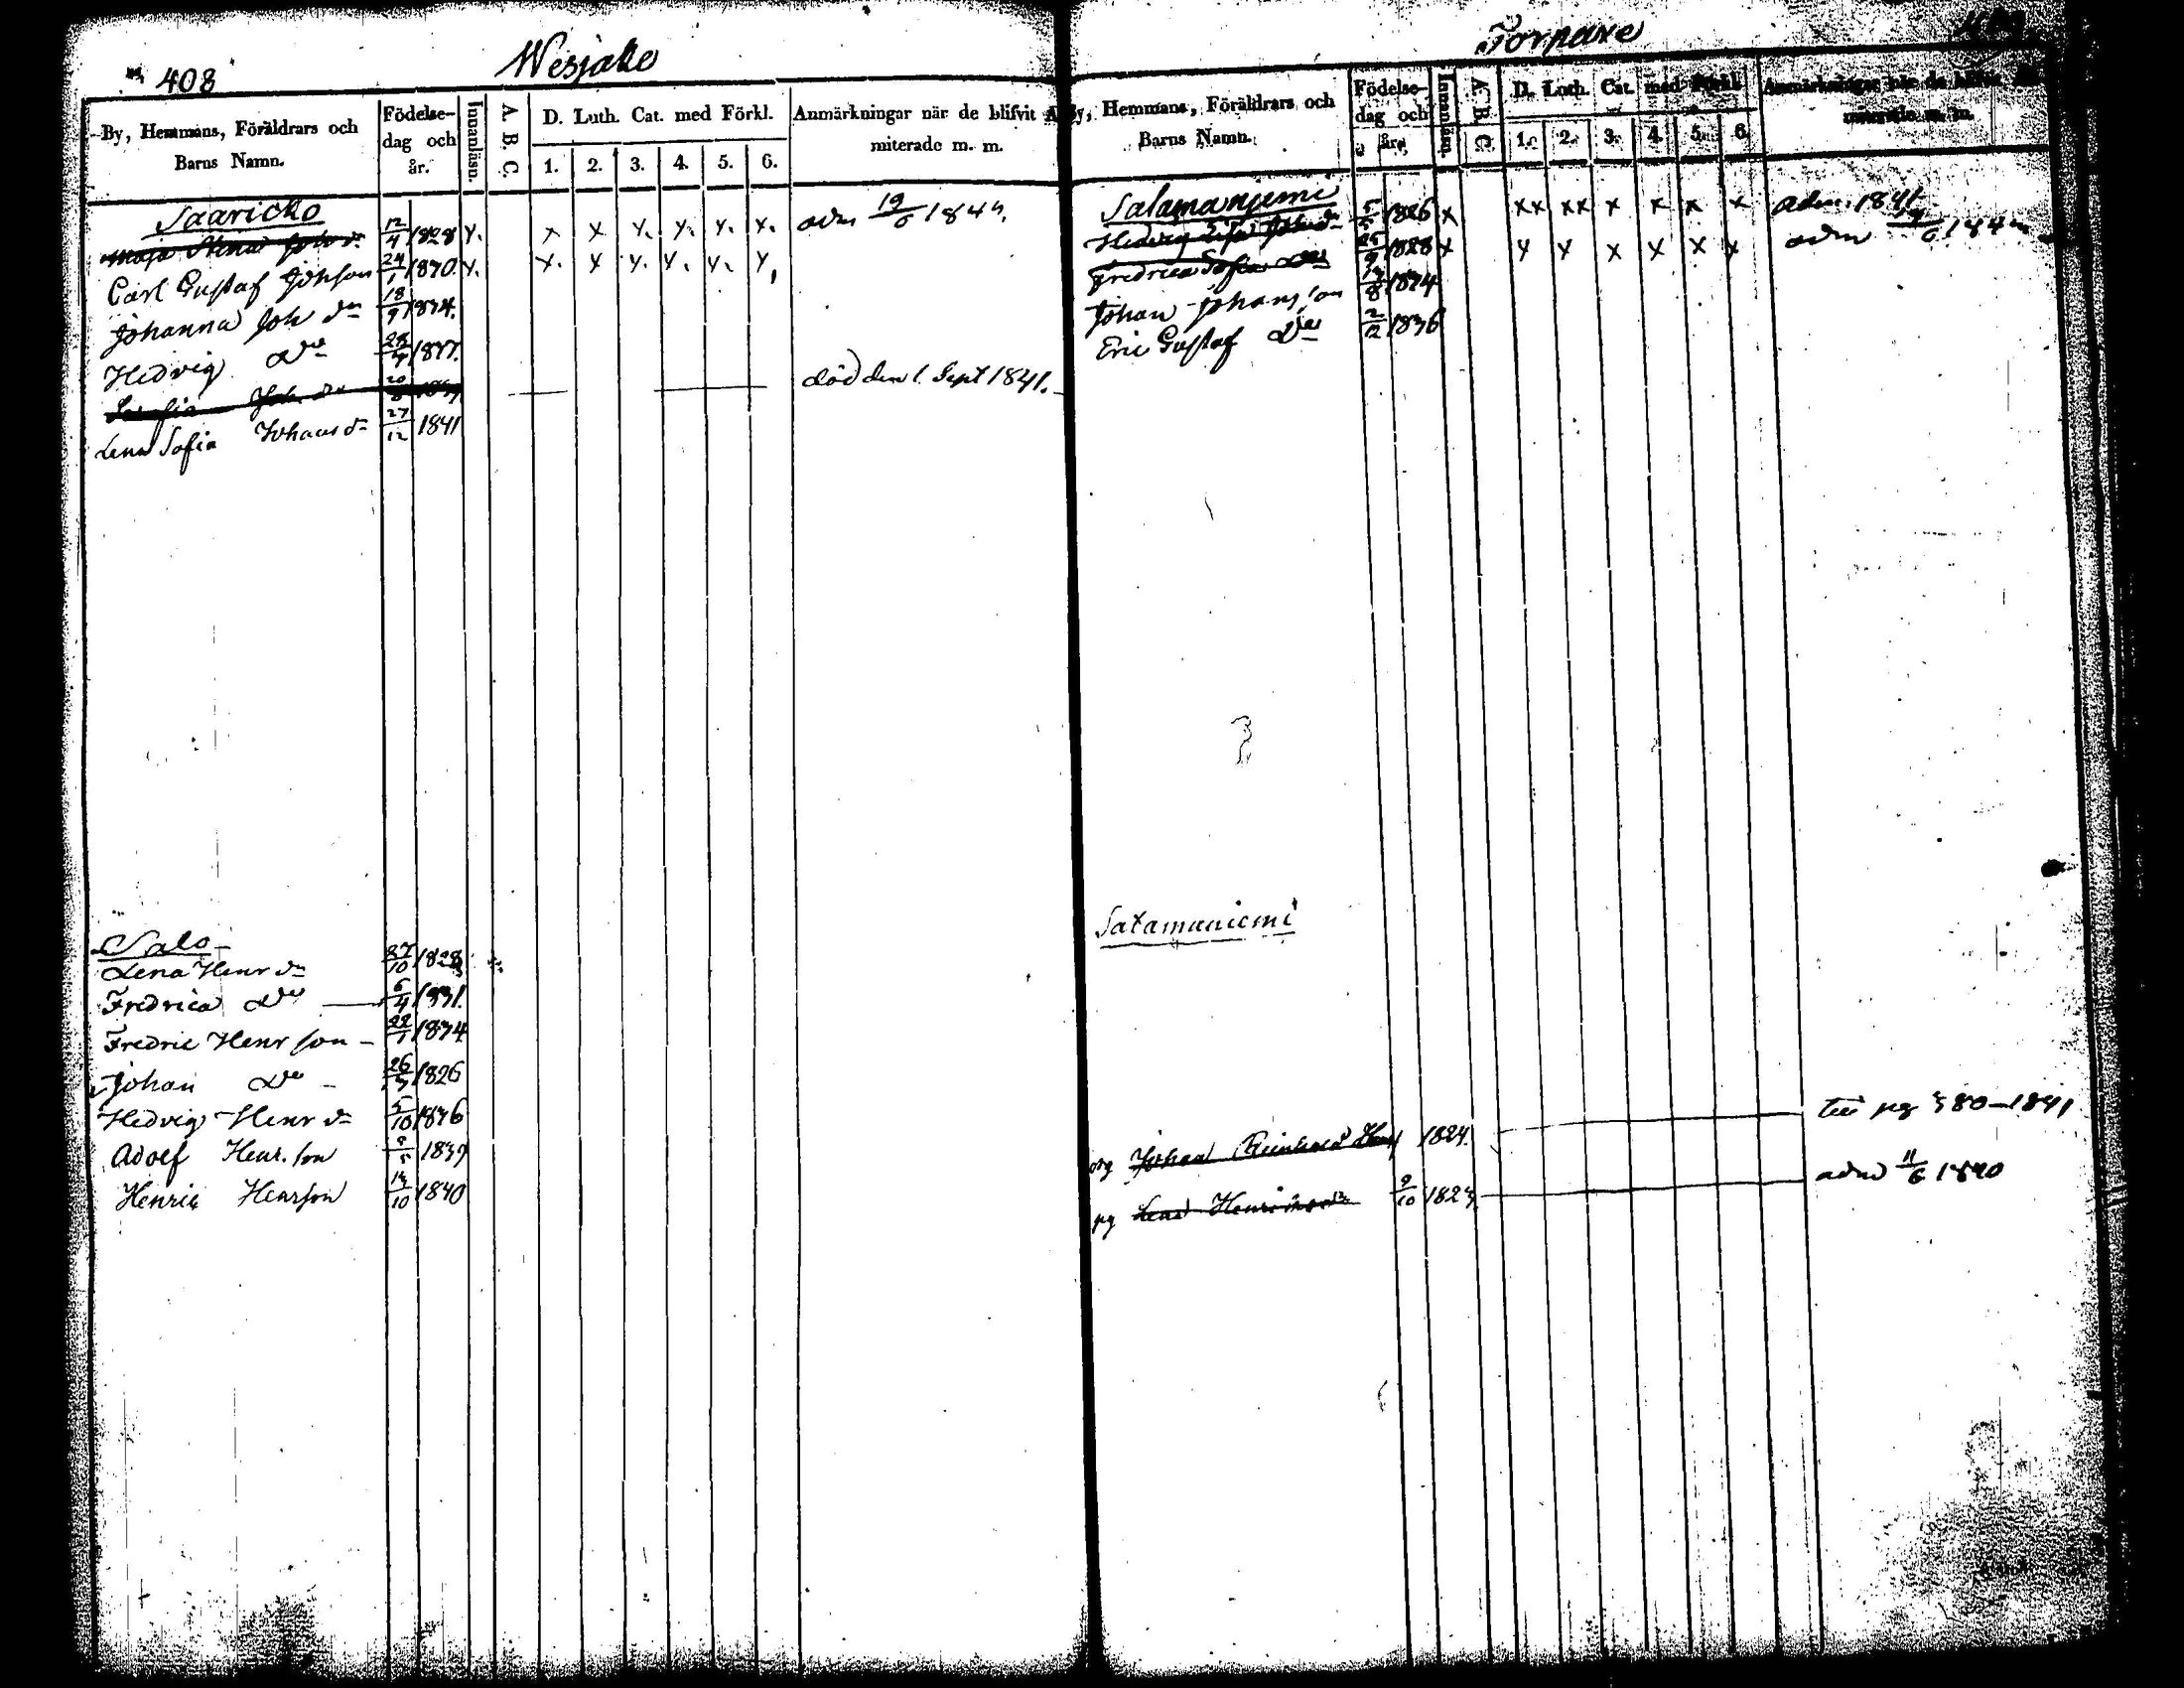 408
Wesjako
By, Hemmans, Föräldrars och Barns Namn.
Födelse-dag och år.
Innanläsn.
A B C
D. Luth. Cat. med Förkl.
1. 2. 3. 4. 5. 6.
Anmärkningar när de blifvit A miterade m. m.
Saaricko
Maja Stina Joh dr 12/4 1828 x. x x x. x. x. x. adm 19/6 1844.
Carl Gustaf Johson 24/1 1830. x. x. x x. x. x. x.
Johanna Joh dr 18/9 1834.
Hedvig Do 1837.
Joh. dr död den 1. Sept 1841.
Lena Sofia Johans dr 27/12 1841
Salo
Lena Henr dr 27/10 1828
Fredrica Do 6/4 1831.
Fredric Henr son 22/1 1834
Johan Do 1826
Hedvig Henr dr 5/10 1836
Adolf Henr. son 1839
Henric Henrson 14/10 1840
Torpare
By, Hemmans, Föräldrars och Barns Namn.
Födelse-dag och år.
Innanläsn.
A B C
D. Luth. Cat. med Förkl.
1. 2. 3. 4. 5. 6.
Anmärkningar
Satamanjemi
Hedvig 1826 x xx xx x x x x adm. 1841
Fredrica Sofia Do 1828 x x x x x x x adm 1844
Johan Johansson 1834
Eric Gustaf Do 2/12 1836
Satamaniemi
Johan 1824. 380—1841
Lena 9/10 1823 adm 11/6 1840